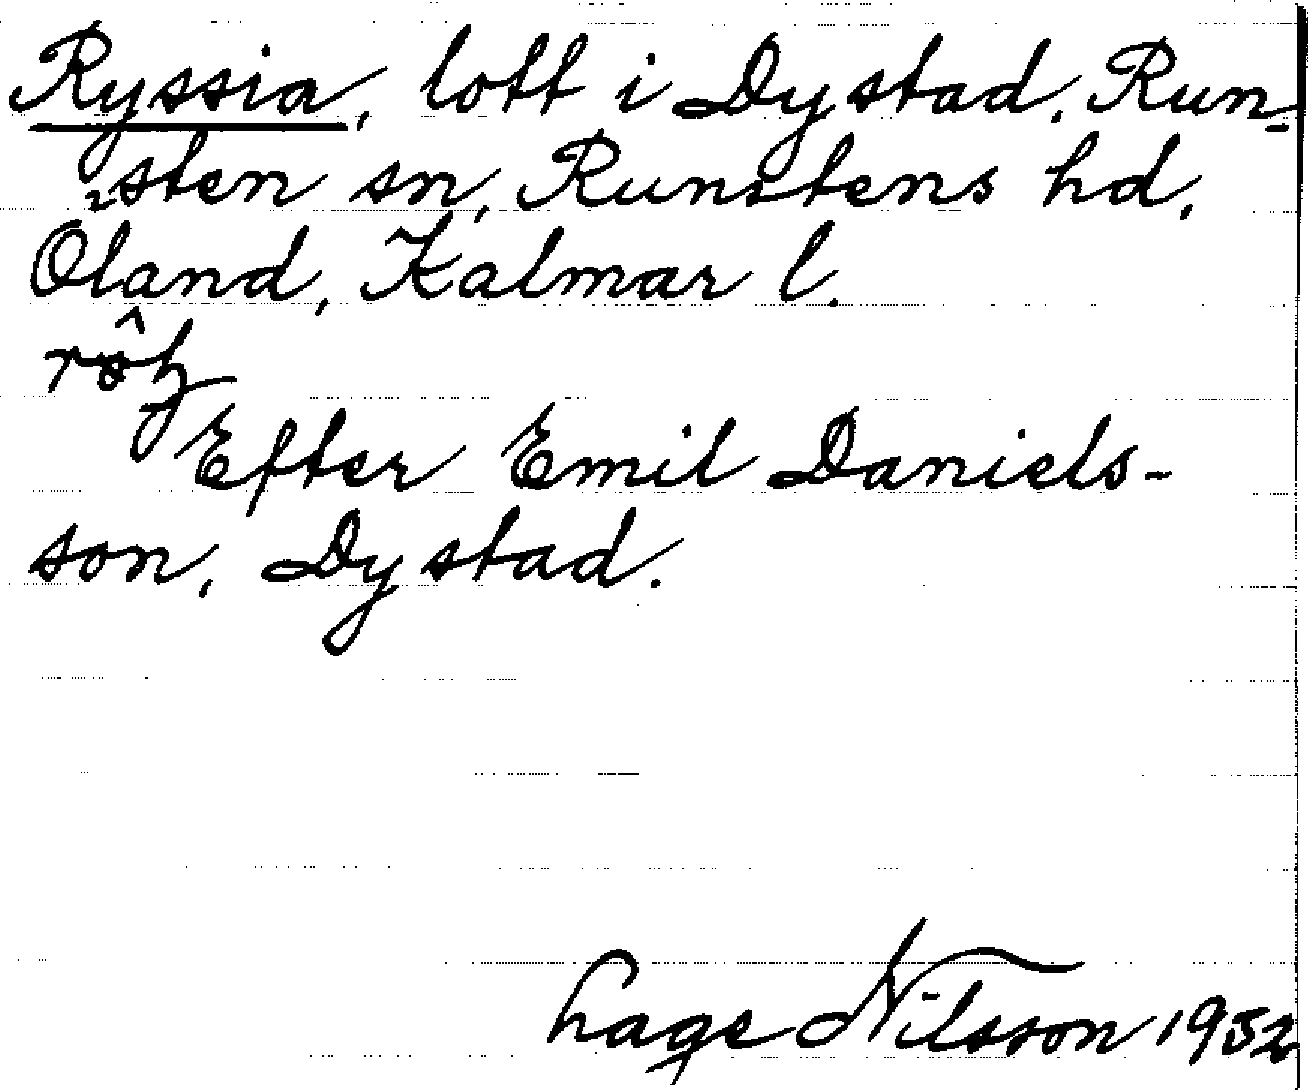 Ryssia, lott i Dystad, Run-
sten sn, Runstens hd,
Öland, Kalmar l.
Efter Emil Daniels-
son, Dystad.
hage Nilsson 1952